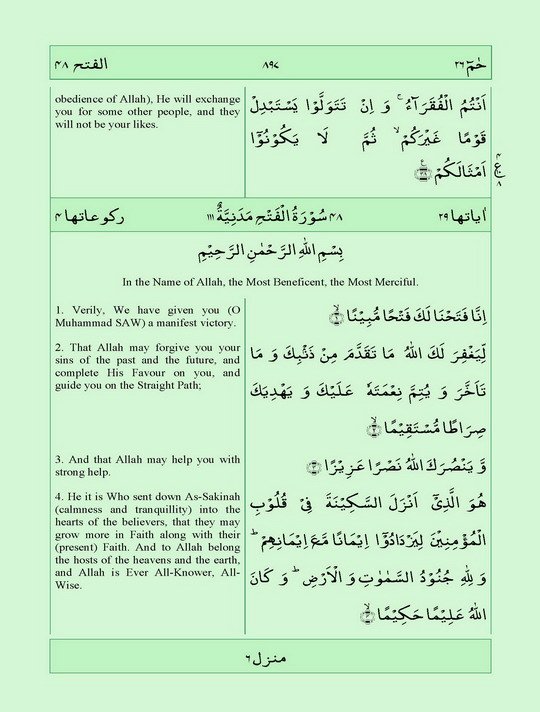 الفتح ۴۸ ۸۹۷ حٰمٓ ۲۶
obedience of Allah), He will exchange
you for some other people, and they
will not be your likes.
اَنْتُمُ الْفُقَرَآءُ ۚ وَ اِنْ تَتَوَلَّوْا يَسْتَبْدِلْ
قَوْمًا غَيْرَكُمْ ۙ ثُمَّ لَا يَكُوْنُوْٓا
اَمْثَالَكُمْ ۟ۧ ۳۸
۴
ع
۸
اٰیاتها ۲۹ ۴۸ سُوْرَةُ الْفَتْحِ مَدَنِيَّةٌ ۱۱۱ ركوعاتها ۴
بِسْمِ اللّٰهِ الرَّحْمٰنِ الرَّحِيْمِ
In the Name of Allah, the Most Beneficent, the Most Merciful.
1. Verily, We have given you (O
Muhammad SAW) a manifest victory.
اِنَّا فَتَحْنَا لَكَ فَتْحًا مُّبِيْنًا ۙ ۱
2. That Allah may forgive you your
sins of the past and the future, and
complete His Favour on you, and
guide you on the Straight Path;
لِّيَغْفِرَ لَكَ اللّٰهُ مَا تَقَدَّمَ مِنْ ذَنْۢبِكَ وَ مَا
تَاَخَّرَ وَ يُتِمَّ نِعْمَتَهٗ عَلَيْكَ وَ يَهْدِيَكَ
صِرَاطًا مُّسْتَقِيْمًا ۙ ۲
3. And that Allah may help you with
strong help.
وَّ يَنْصُرَكَ اللّٰهُ نَصْرًا عَزِيْزًا ۳
4. He it is Who sent down As-Sakinah
(calmness and tranquillity) into the
hearts of the believers, that they may
grow more in Faith along with their
(present) Faith. And to Allah belong
the hosts of the heavens and the earth,
and Allah is Ever All-Knower, All-
Wise.
هُوَ الَّذِيْٓ اَنْزَلَ السَّكِيْنَةَ فِيْ قُلُوْبِ
الْمُؤْمِنِيْنَ لِيَزْدَادُوْٓا اِيْمَانًا مَّعَ اِيْمَانِهِمْ ؕ
وَ لِلّٰهِ جُنُوْدُ السَّمٰوٰتِ وَ الْاَرْضِ ؕ وَ كَانَ
اللّٰهُ عَلِيْمًا حَكِيْمًا ۙ ۴
منزل ۶